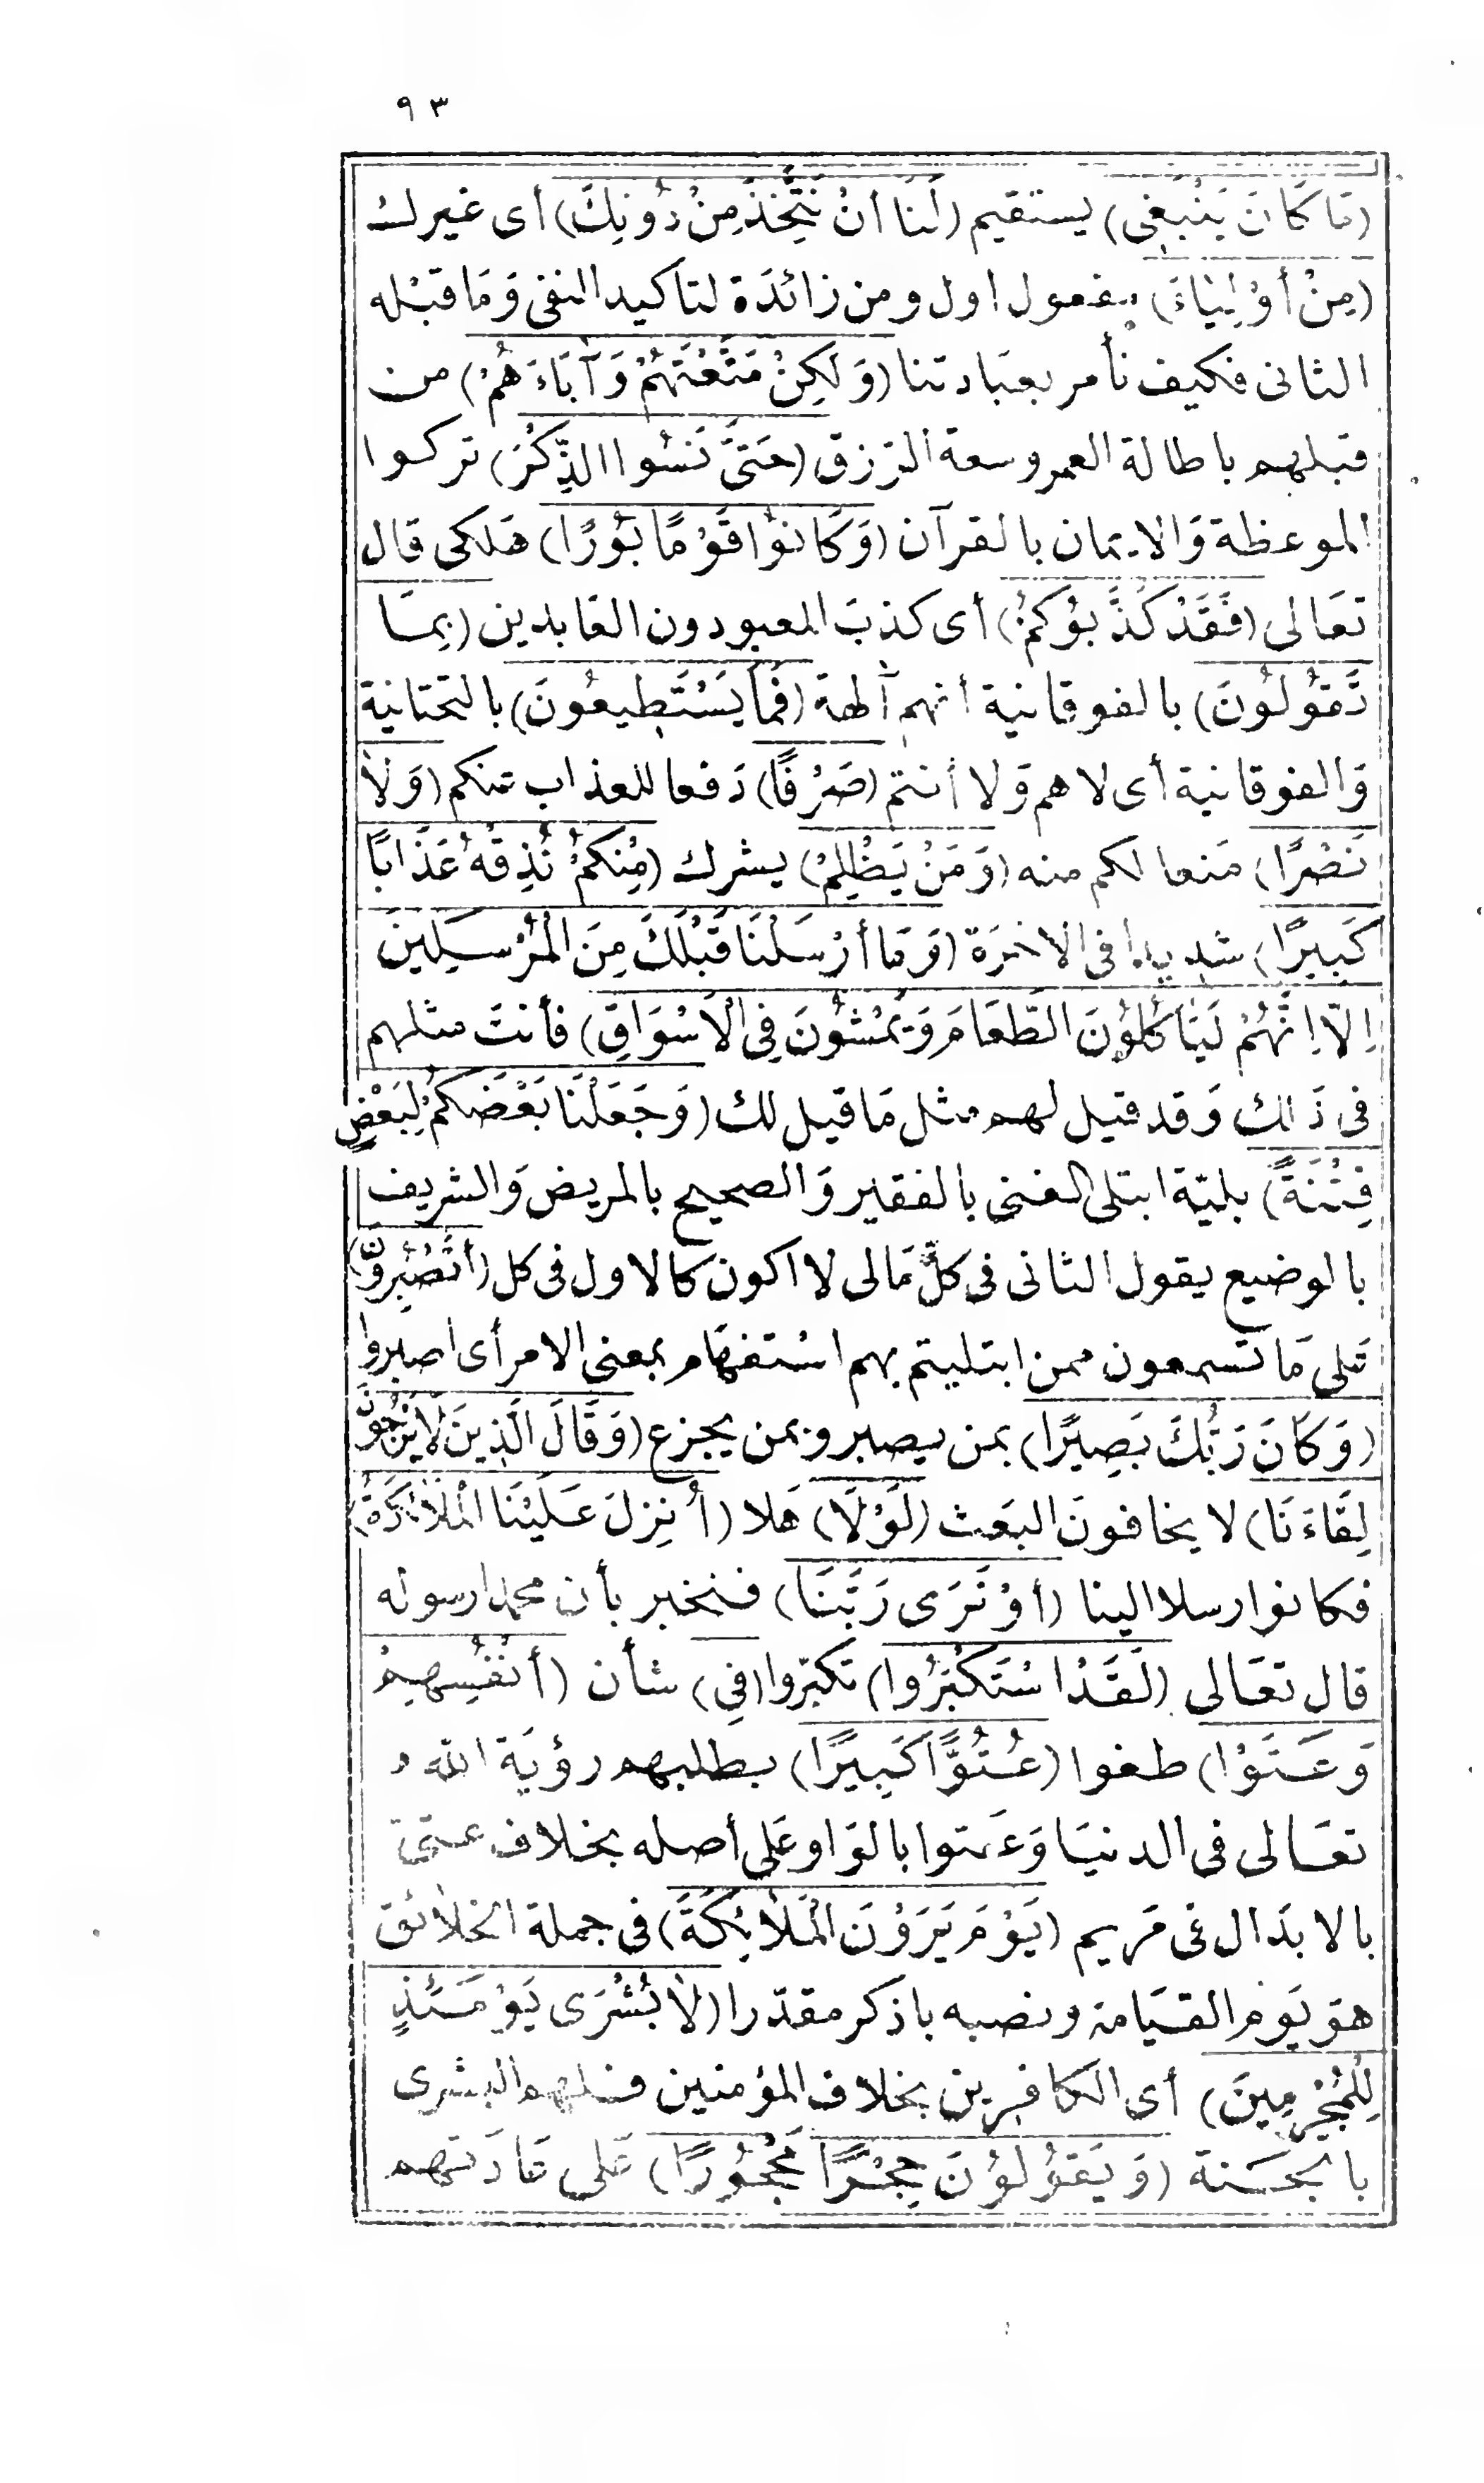 ٩٣
(مَا كَانَ يَنْبَغِى) يستقيم (لَنَا أَنْ نَتَّخِذَ مِنْ دُونِكَ) أى غيرك
(مِنْ أَوْلِيَاءَ) مفعول اول ومن زائدَة لتاكيد النفى وَمَا قبْله
الثانى فكيف نأمر بعبَادتنا (وَلَكِنْ مَتَّعْتَهُمْ وَآبَاءَهُمْ) من
قبلهم باطالة العمر وسعة الرزق (حَتَّى نَسُوا الذِّكْرَ) تركوا
الموعظة وَالايمان بالقرآن (وَكَانُوا قَوْمًا بُورًا) هَلكى قال
تعَالى (فَقَدْ كَذَّبُوكُمْ) أى كذبَ المعبودون العَابدين (بِمَا
تَقُولُونَ) بالفوقانية أنهم آلهة (فَمَا يَسْتَطِيعُونَ) بالتحتانية
وَالفوقانية أى لا هم وَلا أنتم (صَرْفًا) دَفعا للعذاب عنكم (وَلَا
نَصْرًا) مَنعا لكم منه (وَمَنْ يَظْلِمْ) يشرك (مِنْكُمْ نُذِقْهُ عَذَابًا
كَبِيرًا) شديدا فى الاخرَة (وَمَا أَرْسَلْنَا قَبْلَكَ مِنَ الْمُرْسَلِينَ
اِلَّا اِنَّهُمْ لَيَأْكُلُونَ الطَّعَامَ وَيَمْشُونَ فِى الْاَسْوَاقِ) فأنتَ مثلهم
فى ذَلك وَقد قيل لهم مثل مَا قيل لك (وَجَعَلْنَا بَعْضَكُمْ لِبَعْضٍ
فِتْنَةً) بليّة ابتلى الغنى بالفقير وَالصحيح بالمريض وَالشريف
بالوضيع يقول الثانى فى كلّ مَا لى لا اكون كالاول فى كل (أَتَصْبِرُونَ)
عَلى مَا تسمعون ممن ابتليتم بهم اسْتفهَام بمعنى الامر أى اصبروا
(وَكَانَ رَبُّكَ بَصِيرًا) بمن يصبر وبمن يجزع (وَقَالَ الَّذِينَ لَا يَرْجُونَ
لِقَاءَنَا) لا يخافونَ البَعث (لَوْلَا) هَلا (أُنْزِلَ عَلَيْنَا الْمَلَائِكَةُ)
فكانوا رسلا الينا (أَوْ نَرَى رَبَّنَا) فنخبر بأن محمدا رسوله
قال تعَالى (لَقَدْ اسْتَكْبَرُوا) تكبّروا (فِى) شأن (أَنْفُسِهِمْ
وَعَتَوْا) طغوا (عُتُوًّا كَبِيرًا) بطلبهم رؤيَة الله
تعَالى فى الدنيَا وَعَتوا بالوَاو عَلى أصله بخلاف عتىّ
بالابدَال فى مَريم (يَوْمَ يَرَوْنَ الْمَلَائِكَةَ) فى جملة الخلائق
هوَ يَوم القيَامة ونصبه باذكر مقدّرا (لَا بُشْرَى يَوْمَئِذٍ
لِلْمُجْرِمِينَ) أى الكافرين بخلاف المؤمنين فلهم البشرى
بالجَنة (وَيَقُولُونَ حِجْرًا مَحْجُورًا) عَلى عَادَتهم